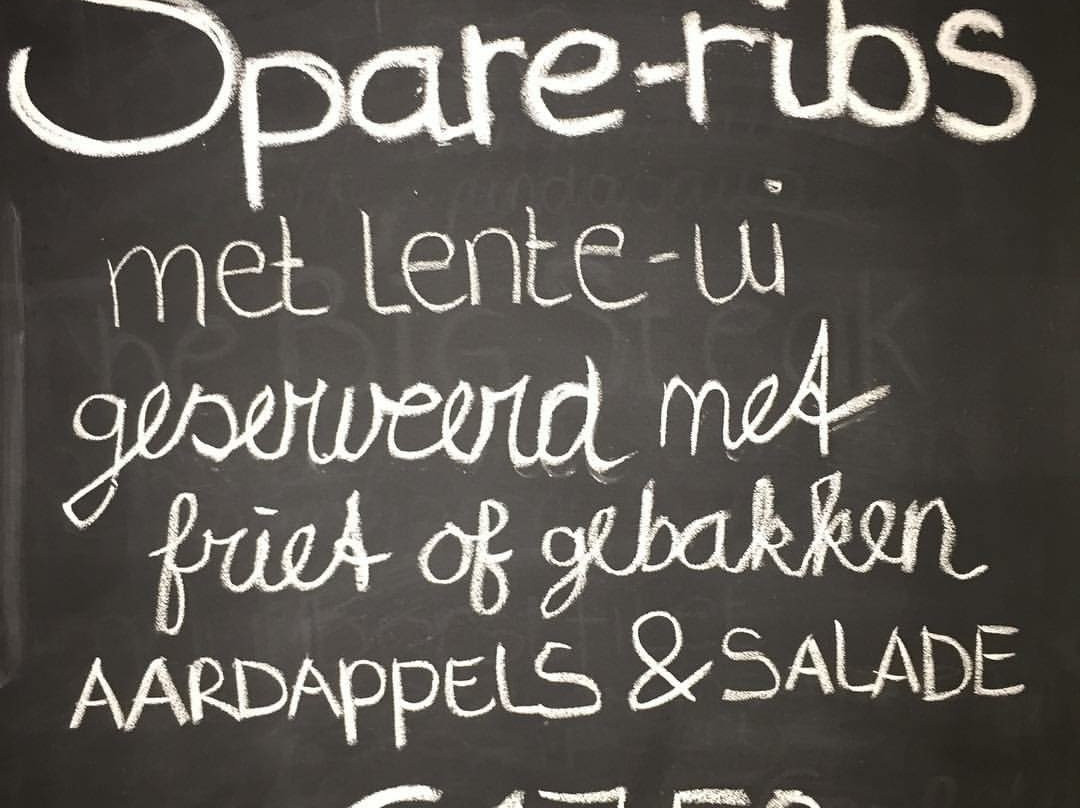 Spare-ribs
met Lente-ui
geserveerd met
friet of gebakken
AARDAPPELS & SALADE